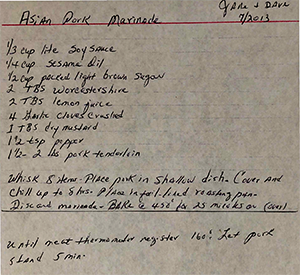 Asian Pork Marinade
Jane & Dave
7/2013
1/3 cup lite soy sauce
1/4 cup sesame oil
1/2 cup packed light brown sugar
2 TBS Worcestershire
2 TBS lemon juice
4 garlic cloves crushed
1 TBS dry mustard
1 1/2 tsp pepper
1 1/2 - 2 lbs pork tenderloin
Whisk 8 items - Place pork in shallow dish - Cover and
chill up to 8 hrs. Place in foil lined roasting pan -
Discard marinade - Bake @ 450° for 25 minutes or (over)
until meat thermometer register 160° Let pork
stand 5 min.